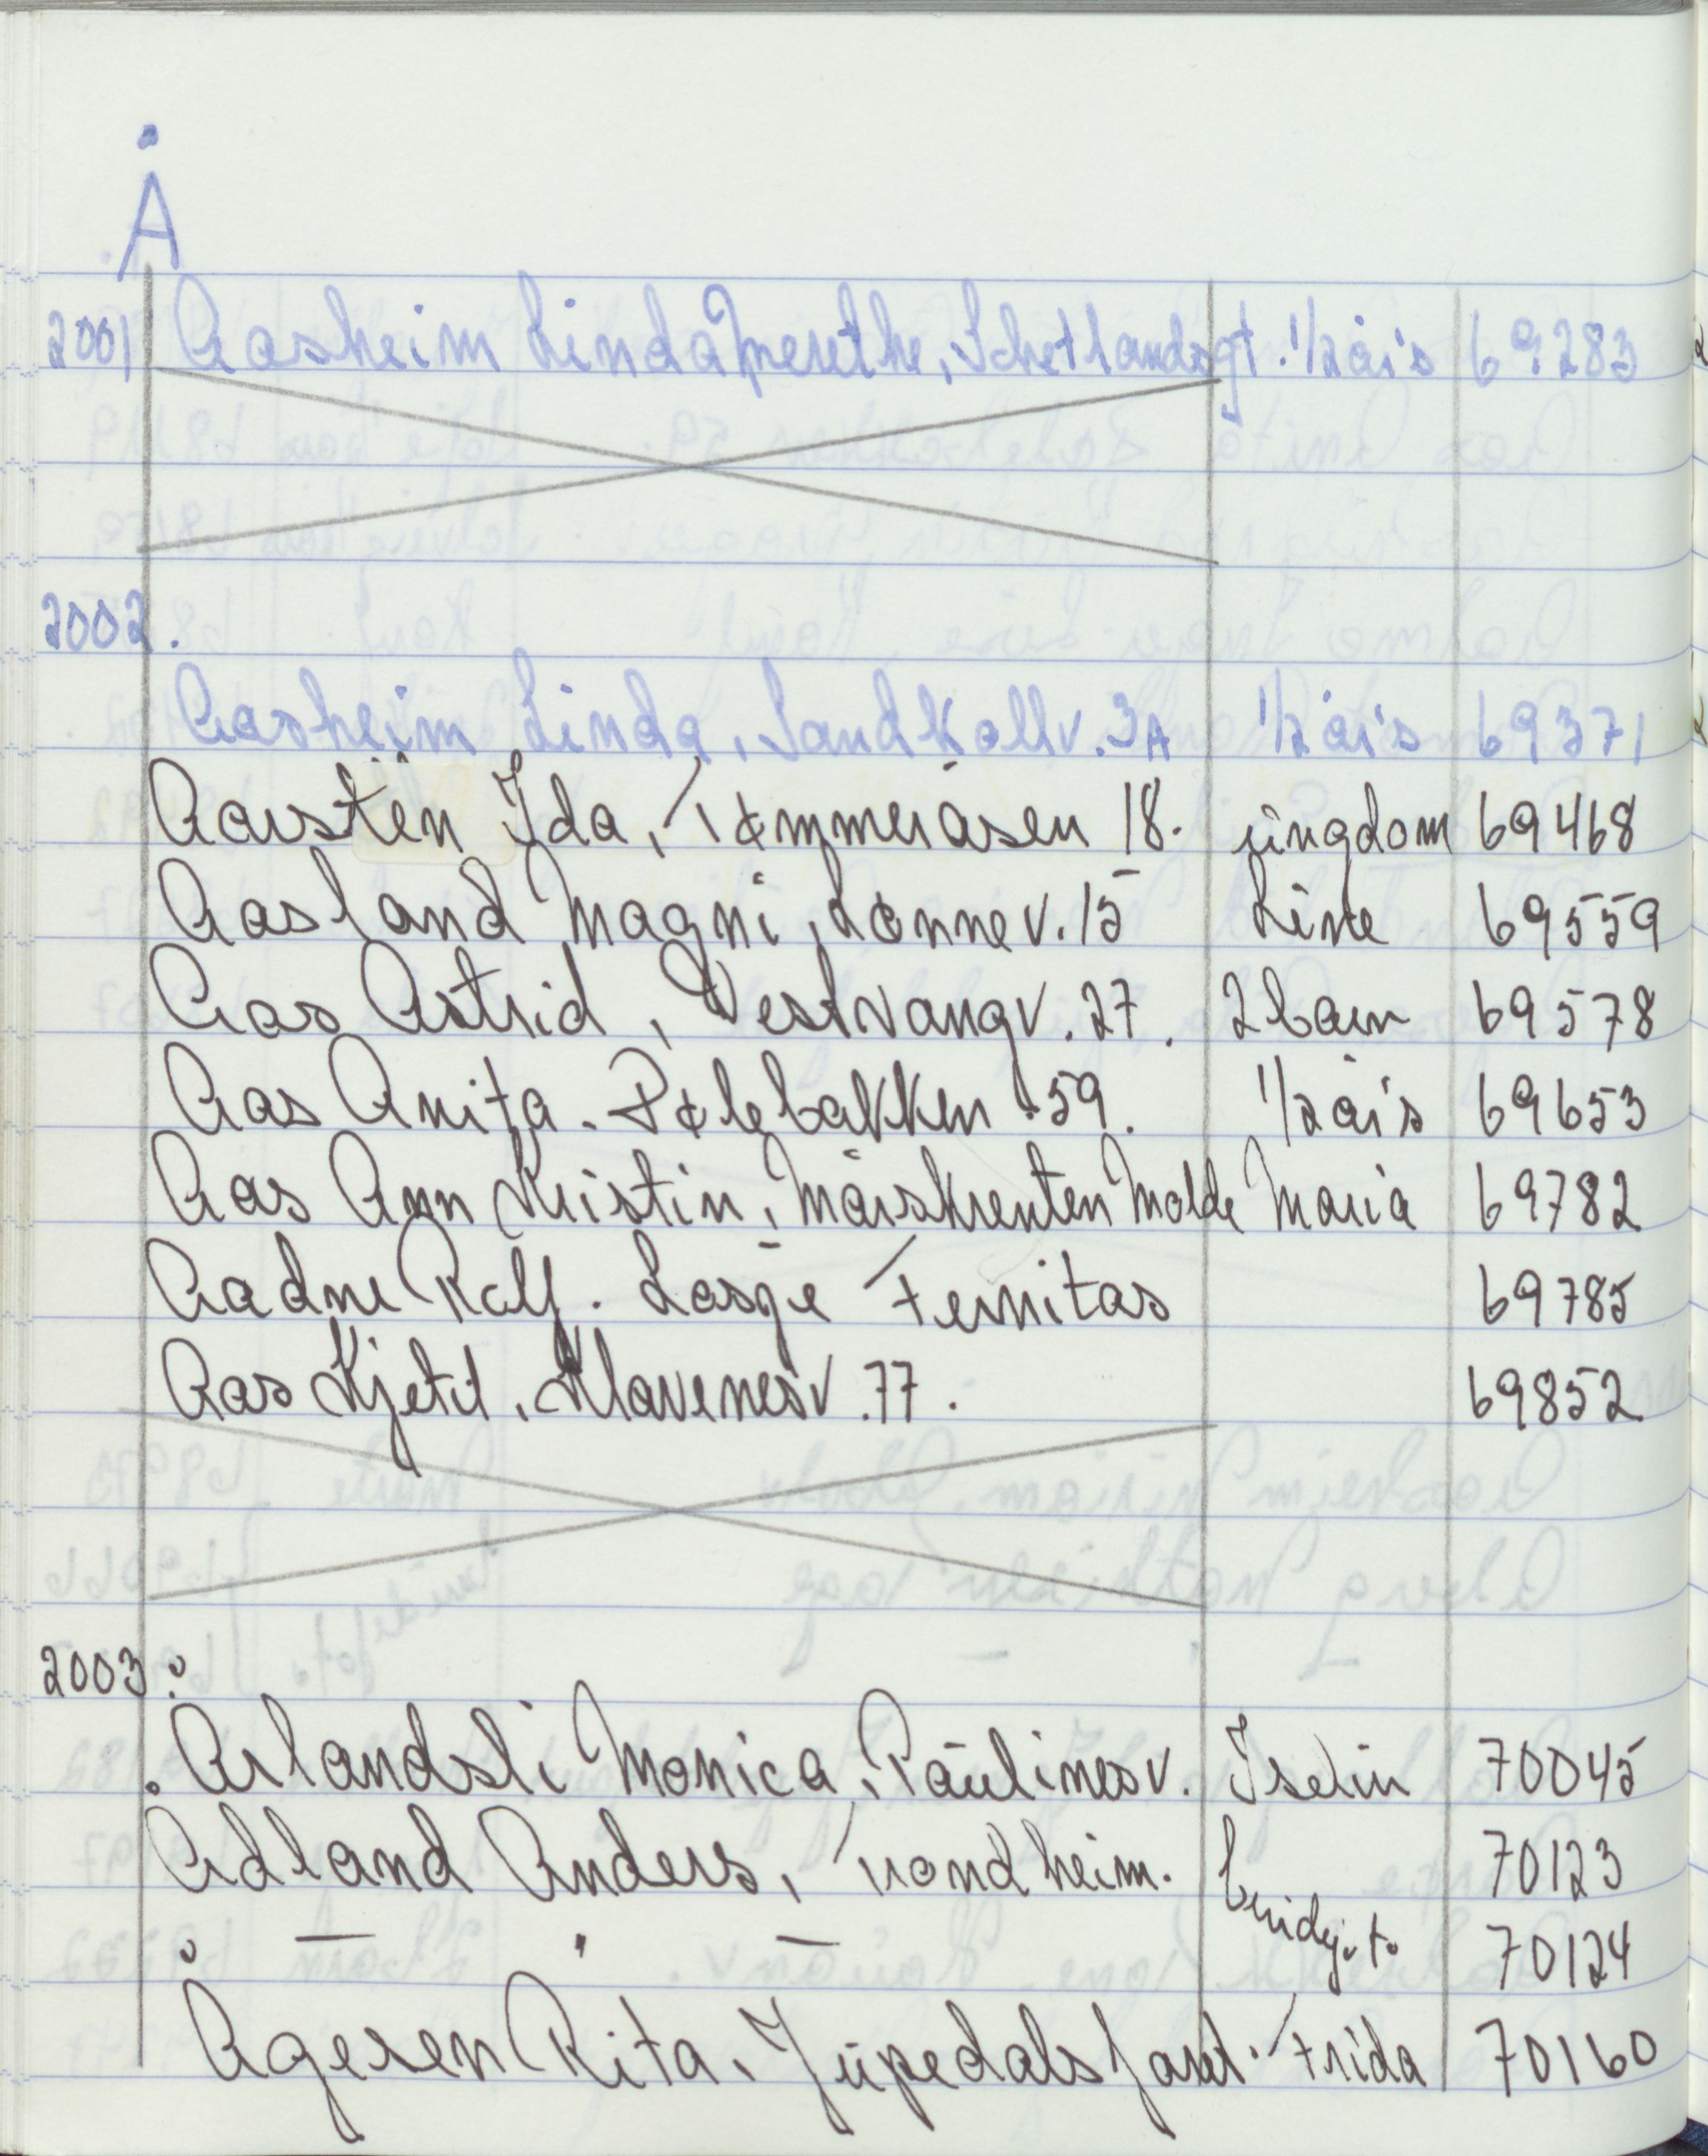 Å
2001 Aasheim Linda Merethe, Schetlandsgt. 1/2 års 69283
2002.
Aasheim Linda, Sandkollv. 3A 1/2 års 69371
Aarstein Ida, Tømmeråsen 18. ungdom 69468
Aasland Magni, Lønnev. 15 Line 69559
Aas Astrid, Vestvangv. 27. 2 barn 69578
Aas Anita. Pølebakken 59. 1/2 års 69653
Aas Ann Kristin, Mårskrenten Molde Maria 69782
Aadne Rolf. Losje Fernitas 69785
Aas Kjetil, Klavenesv. 77. 69852
2003:
Årlandsli Monica, Paulinesv. Iselin 70045
Ådland Anders, Trondheim. brudej.t. 70123
— " — 70124
Ågesen Rita, Jupedalsfaret. Frida 70160